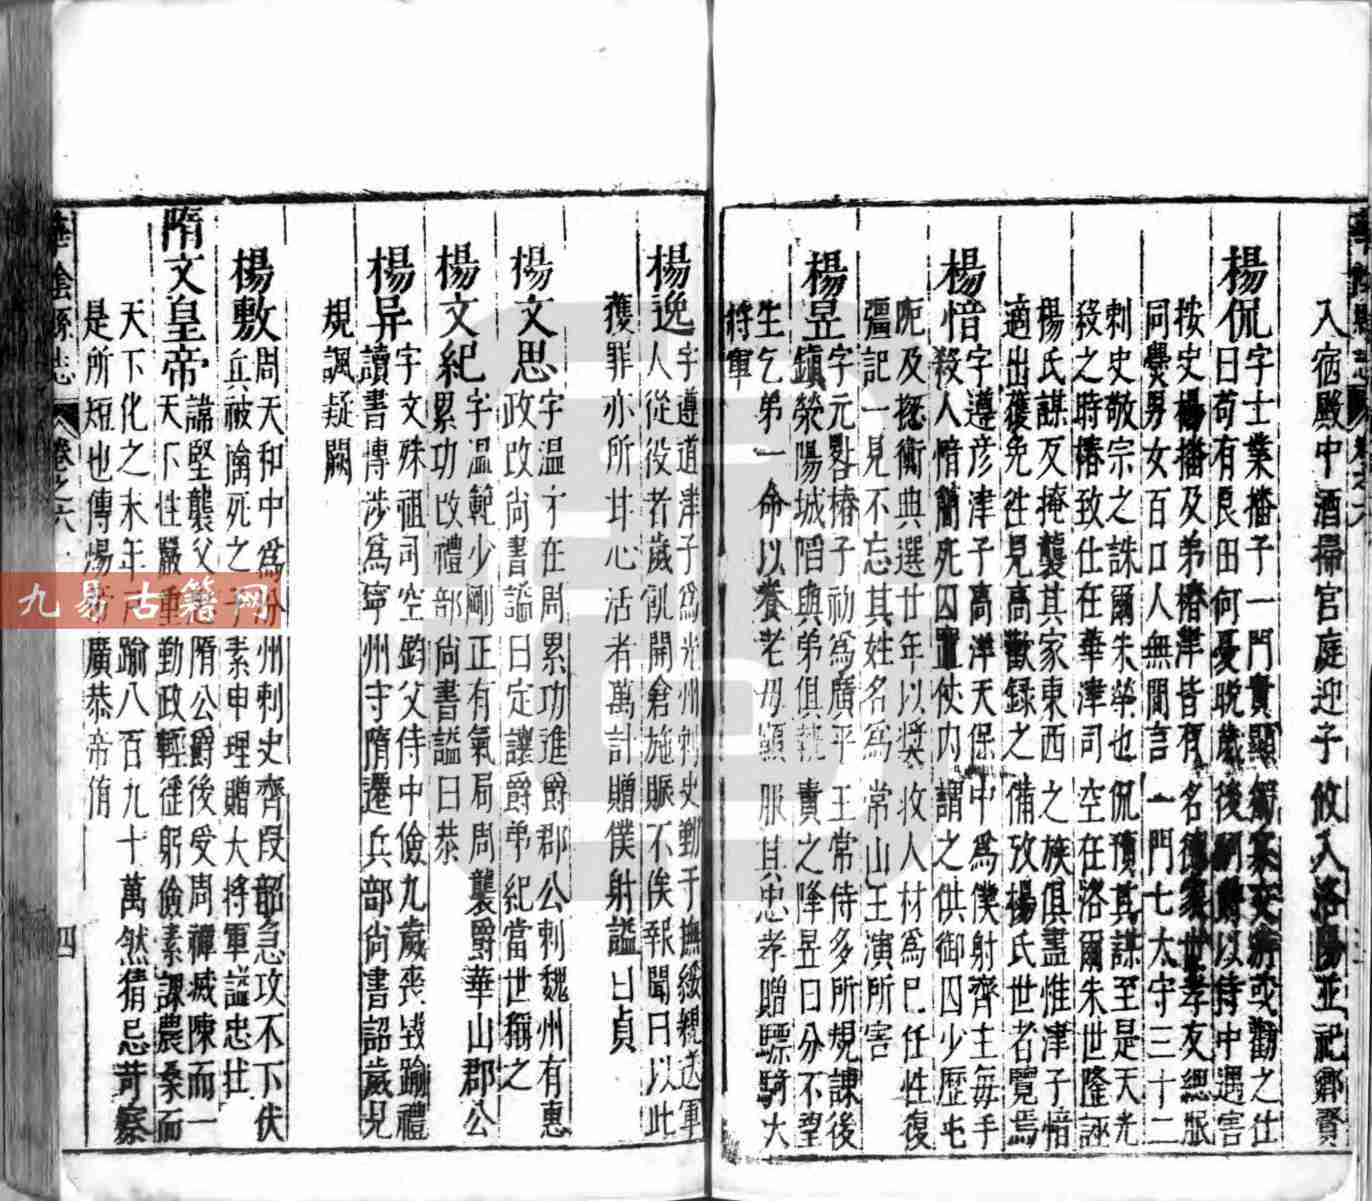 入宿殿中酒掃官庭迎子攸入洛陽並祀鄉賢
楊侃字士業播子一門貴顯
曰苟有良田何憂晚歲後
以侍中遇害
按史楊播及弟椿津皆有名德
世孝友緦服
同爨男女百口人無間言一門七太守三十二
刺史敬宗之誅爾朱榮也侃預其謀至是天光
殺之時椿致仕在華津司空在洛爾朱世隆誣
楊氏謀反掩襲其家東西之族俱盡惟津子愔
適出獲免往見高歡錄之備攷楊氏世者覽焉
楊愔字遵彦津子高洋天保中為僕射齊主每手
殺人愔簡死囚置仗內謂之供御囚少歷屯
阨及揔衡典選廿年以獎收人材為巳任性復
彊記一見不忘其姓名為常山王演所害
楊昱字元晷椿子初為廣平王常侍多所規諫後
鎮滎陽城陷與弟俱執責之隆昱曰分不望
生乞弟一命以養老母顥服其忠孝贈驃騎大
將軍
楊逸字遵道津子為光州刺史勤于撫綏親送軍
人從役者歲飢開倉施賑不俟報聞曰以此
獲罪亦所甘心活者萬計贈僕射謚曰貞
楊文思字温才在周累功進爵郡公刺魏州有惠
政改尚書謚曰定讓爵弟紀當世稱之
楊文紀字温範少剛正有氣局周襲爵華山郡公
累功改禮部尚書謚曰恭
楊异字文殊祖司空鈞父侍中儉九歲喪毀踰禮
讀書博涉為寧州守隋遷兵部尚書詔歲見
規諷疑闕
楊敷周天和中為汾州刺史齊段韶急攻不下伏
兵被擒死之子素申理贈大將軍謚忠壮
隋文皇帝諱堅襲父
隋公爵後受周禪㓕陳而一
天下性嚴重勤政輕徭躬儉素課農桑而
天下化之末年戸踰八百九十萬然猜忌苛察
是所短也傳煬帝廣恭帝侑
華陰縣志
卷之六
四
九易古籍网